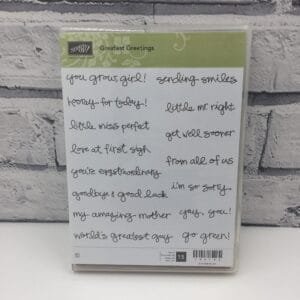 Greatest Greetings
you grow, girl!
sending smiles
hooray for today!
little mr. right
little miss perfect
get well sooner
love at first sigh
from all of us
you're enystraordinary
i'm so sorry
goodbye & good luck
my amazing mother
yay, you!
world's greatest guy
go green!
15